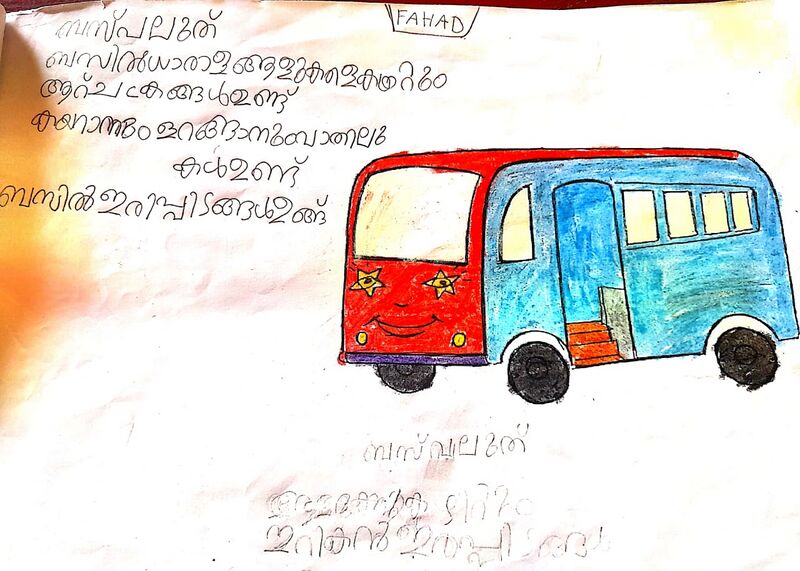 FAHAD
ബസ് പലുത്
ബസിൽ ധാരാള ആളുകളെ കയറ്റും
ആറ് ചക്രങ്ങൾ ഉണ്ട്
കയറാനും ഇറങ്ങാനും വാതലു
കൾ ഉണ്ട്
ബസിൽ ഇരിപ്പിടങ്ങൾ ഉണ്ട്
ബസ് വലുത്
ഇരികൻ ഇരപ്പിടങ്ങൾ